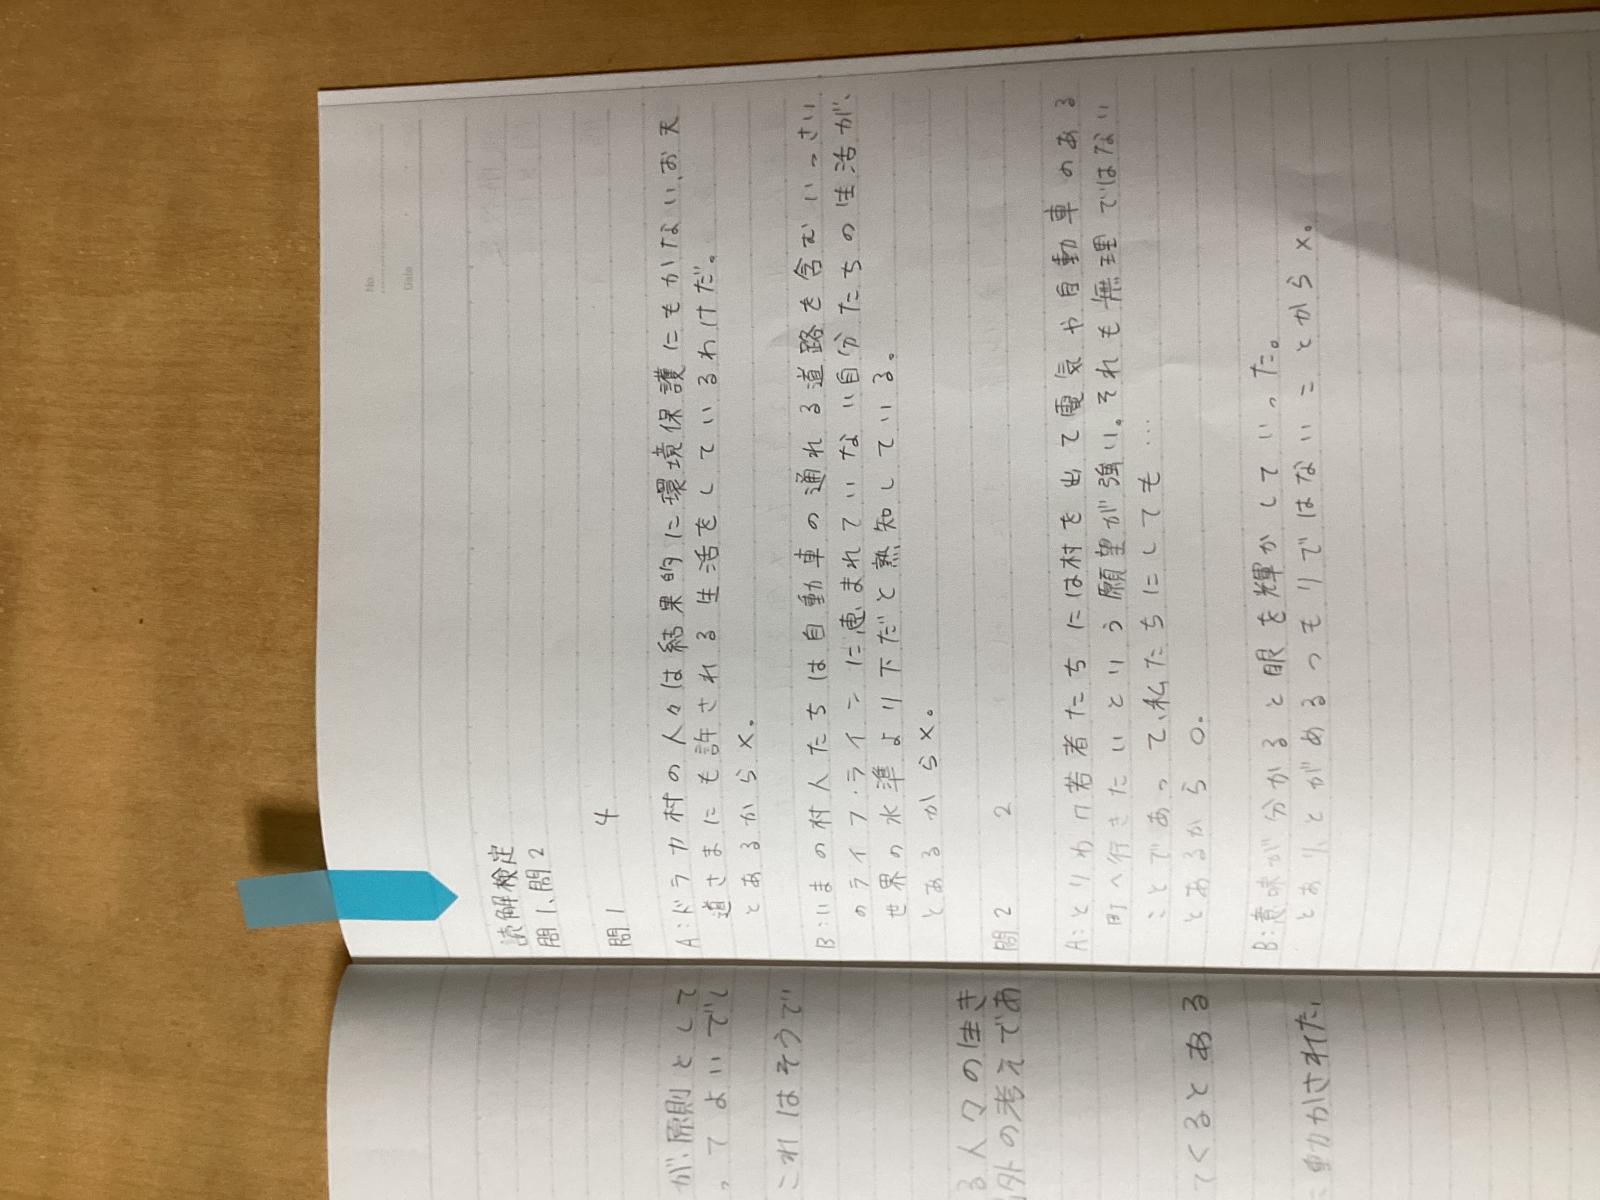 No
Date
読解検定
問1、問2
問1 4
A:ドラカ村の人々は結果的に環境保護にもかない、お天
道さまにも許される生活をしているわけだ。
とあるから×。
B:いまの村人たちは自動車の通れる道路を含むいっさい
のライフ・ラインに恵まれていない自分たちの生活が、
世界の水準より下だと熟知している。
とあるから×。
問2 2
A:とりわけ若者たちには村を出て電気や自動車のある
町へ行きたいという願望が強い。それも無理ではない
ことであって、私たちにしても…
とあるから○。
B:意味が分かると眼を輝かしていった。
とあり、とがめるつもりではないことから×。
が、原則として
ってよいでし
これはそうで
る人々の生き
外の考えであ
てくるとある
動かされた、